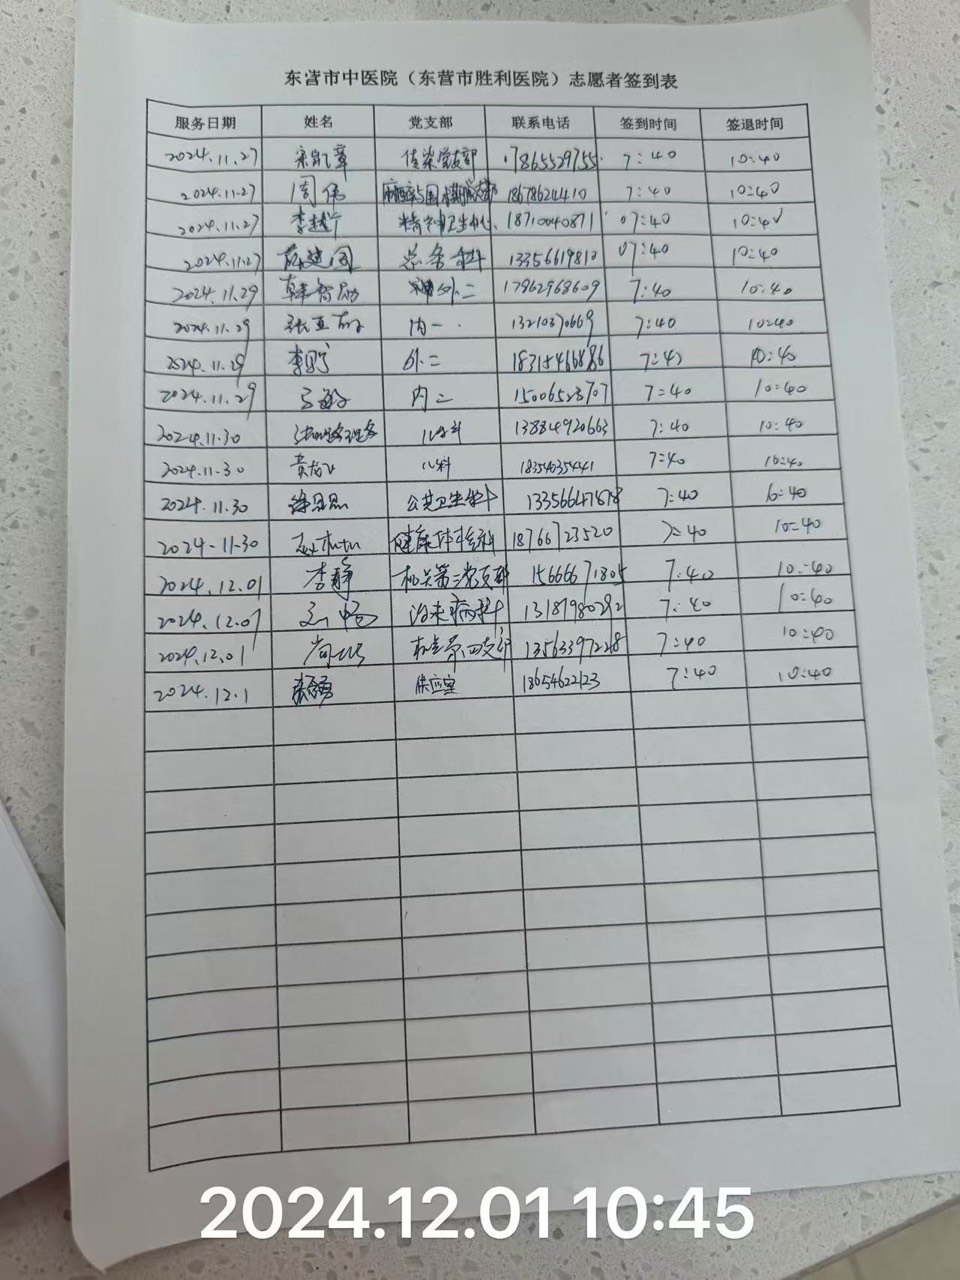 东营市中医院（东营市胜利医院）志愿者签到表
服务日期 姓名 党支部 联系电话 签到时间 签退时间
2024.11.27 宋凯章 传染党支部 17865529755 7:40 10:40
2024.11.27 周伟 18678624410 7:40 10:40
2024.11.27 精神卫生 18710040871 07:40 10:40
2024.11.27 薛建国 总务科 13356619810 07:40 10:40
2024.11.29 外二 17862968609 7:40 10:40
2024.11.29 内一 13210370669 7:40 10:40
2024.11.29 外二 18315466886 7:40 10:40
2024.11.29 内二 15006523707 7:40 10:40
2024.11.30 儿科 13884920663 7:40 10:40
2024.11.30 儿科 18340354441 7:40 10:40
2024.11.30 公共卫生科 7:40 10:40
2024-11-30 健康体检科 18766723520 7:40 10:40
2024.12.01 李静 机关第三党支部 15666671805 7:40 10:40
2024.12.01 王畅 治未病科 13187980292 7:40 10:40
2024.12.01 机关第四支部 7:40 10:40
2024.12.1 供应室 18654622123 7:40 10:40
2024.12.01 10:45